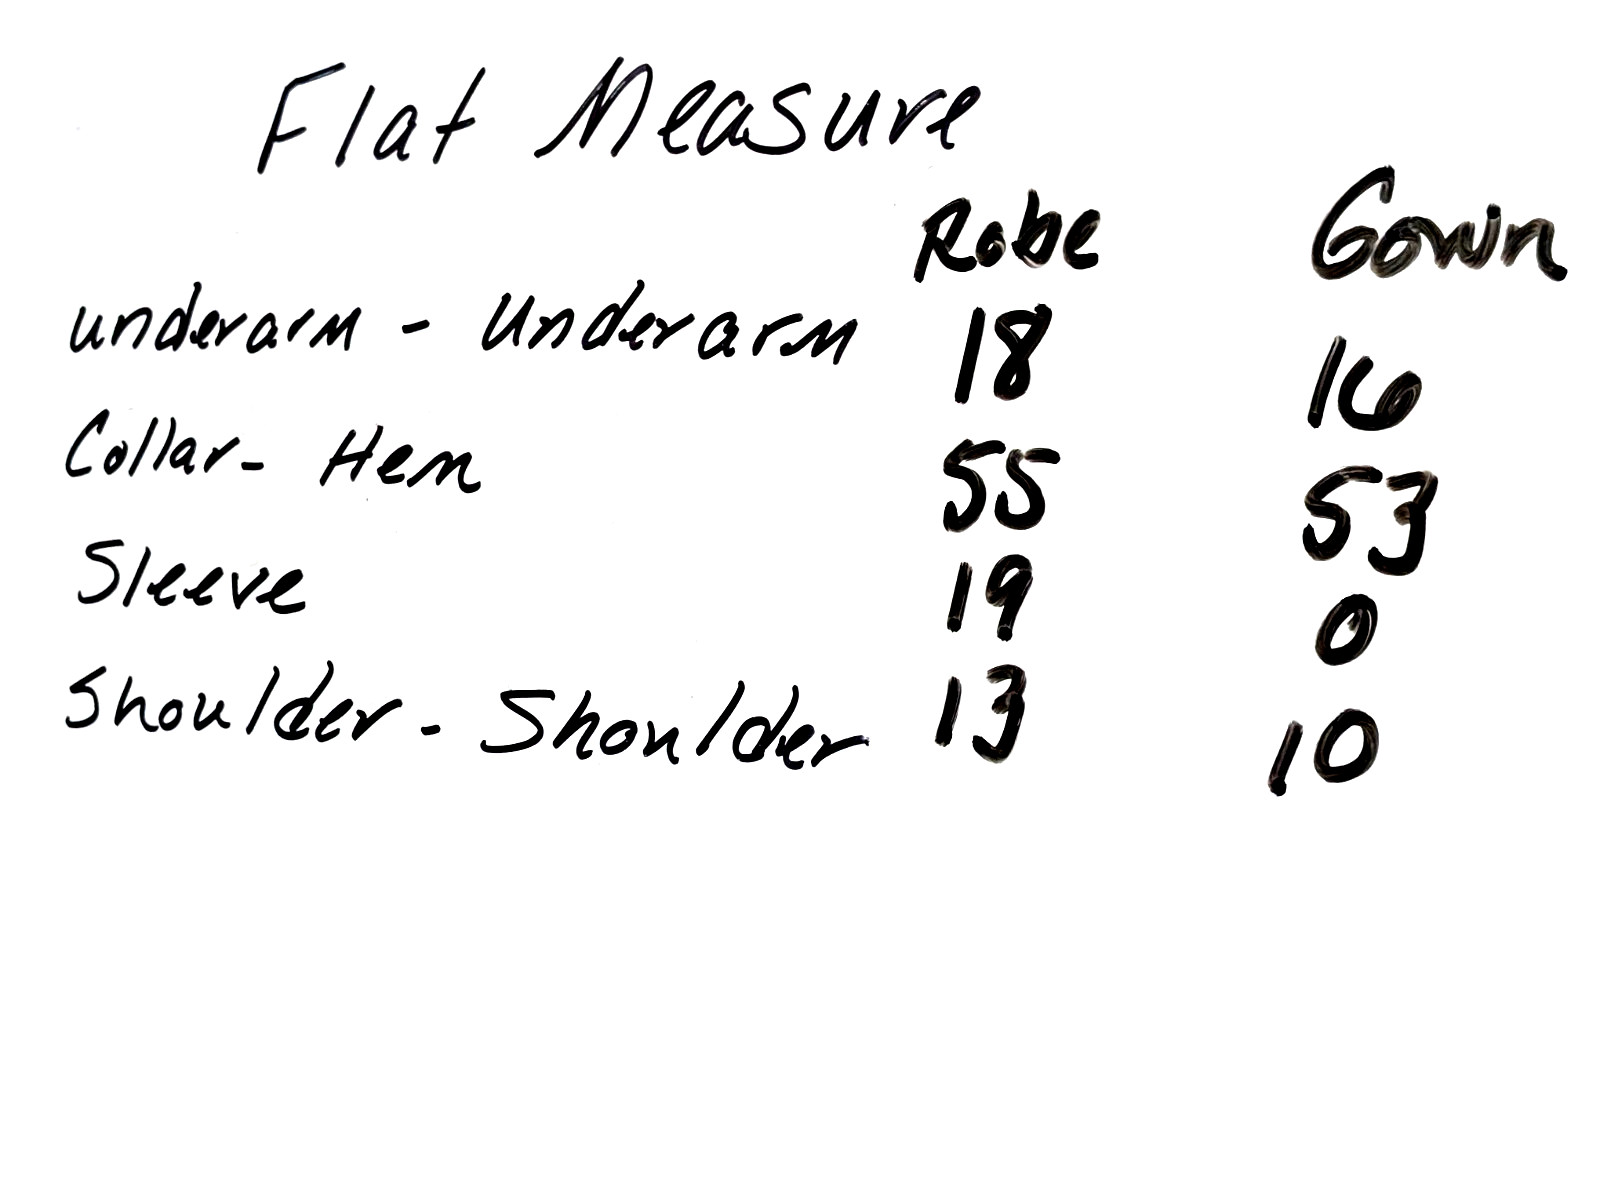 Flat Measure
Robe Gown
underarm - Underarm 18 16
Collar - Hem 55 53
Sleeve 19 0
Shoulder - Shoulder 13 10